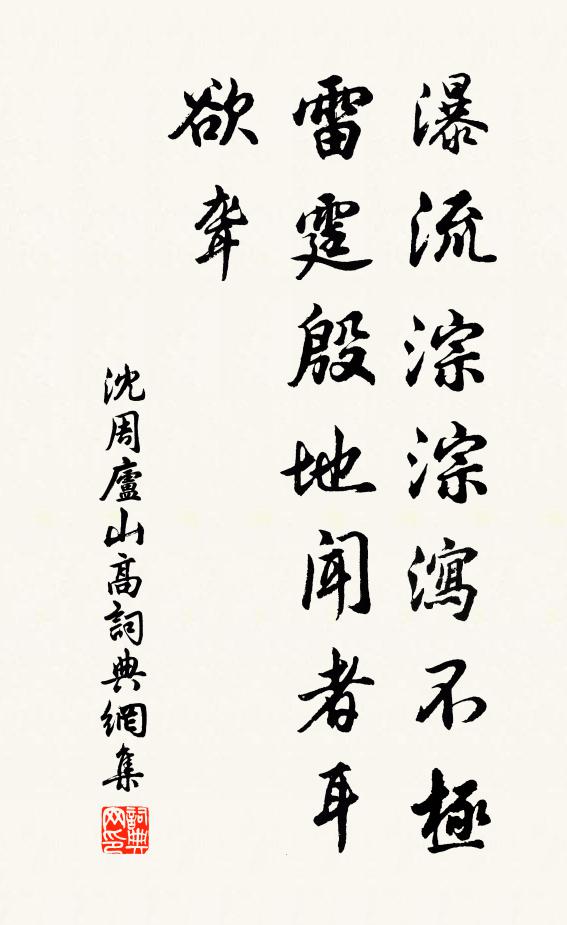 瀑流淙淙瀉不極
雷霆殷地聞者耳
欲聾
沈周廬山高詞典網集
詞典网印